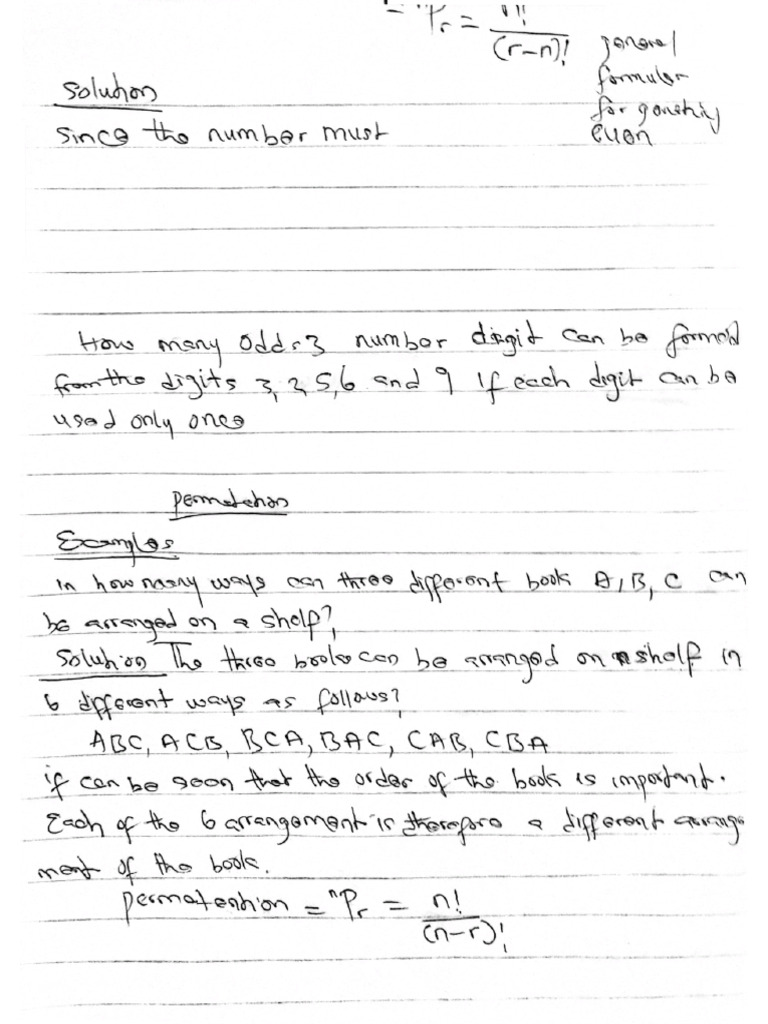 = ⁿPr = n! / (r-n)!
general
formular
for
even
Solution
Since the number must
How many odd 3 number digit can be formed
from the digits 3, 2, 5, 6 and 9 if each digit can be
used only once
Permutation
Examples
in how many ways can three different book A, B, C can
be arranged on a shelf?
Solution The three books can be arranged on shelf in
6 different ways as follows?
ABC, ACB, BCA, BAC, CAB, CBA
if can be seen that the order of the book is important.
Each of the 6 arrangement is therefore a different arrange
ment of the book.
permutention = ⁿPr = n! / (n-r)!